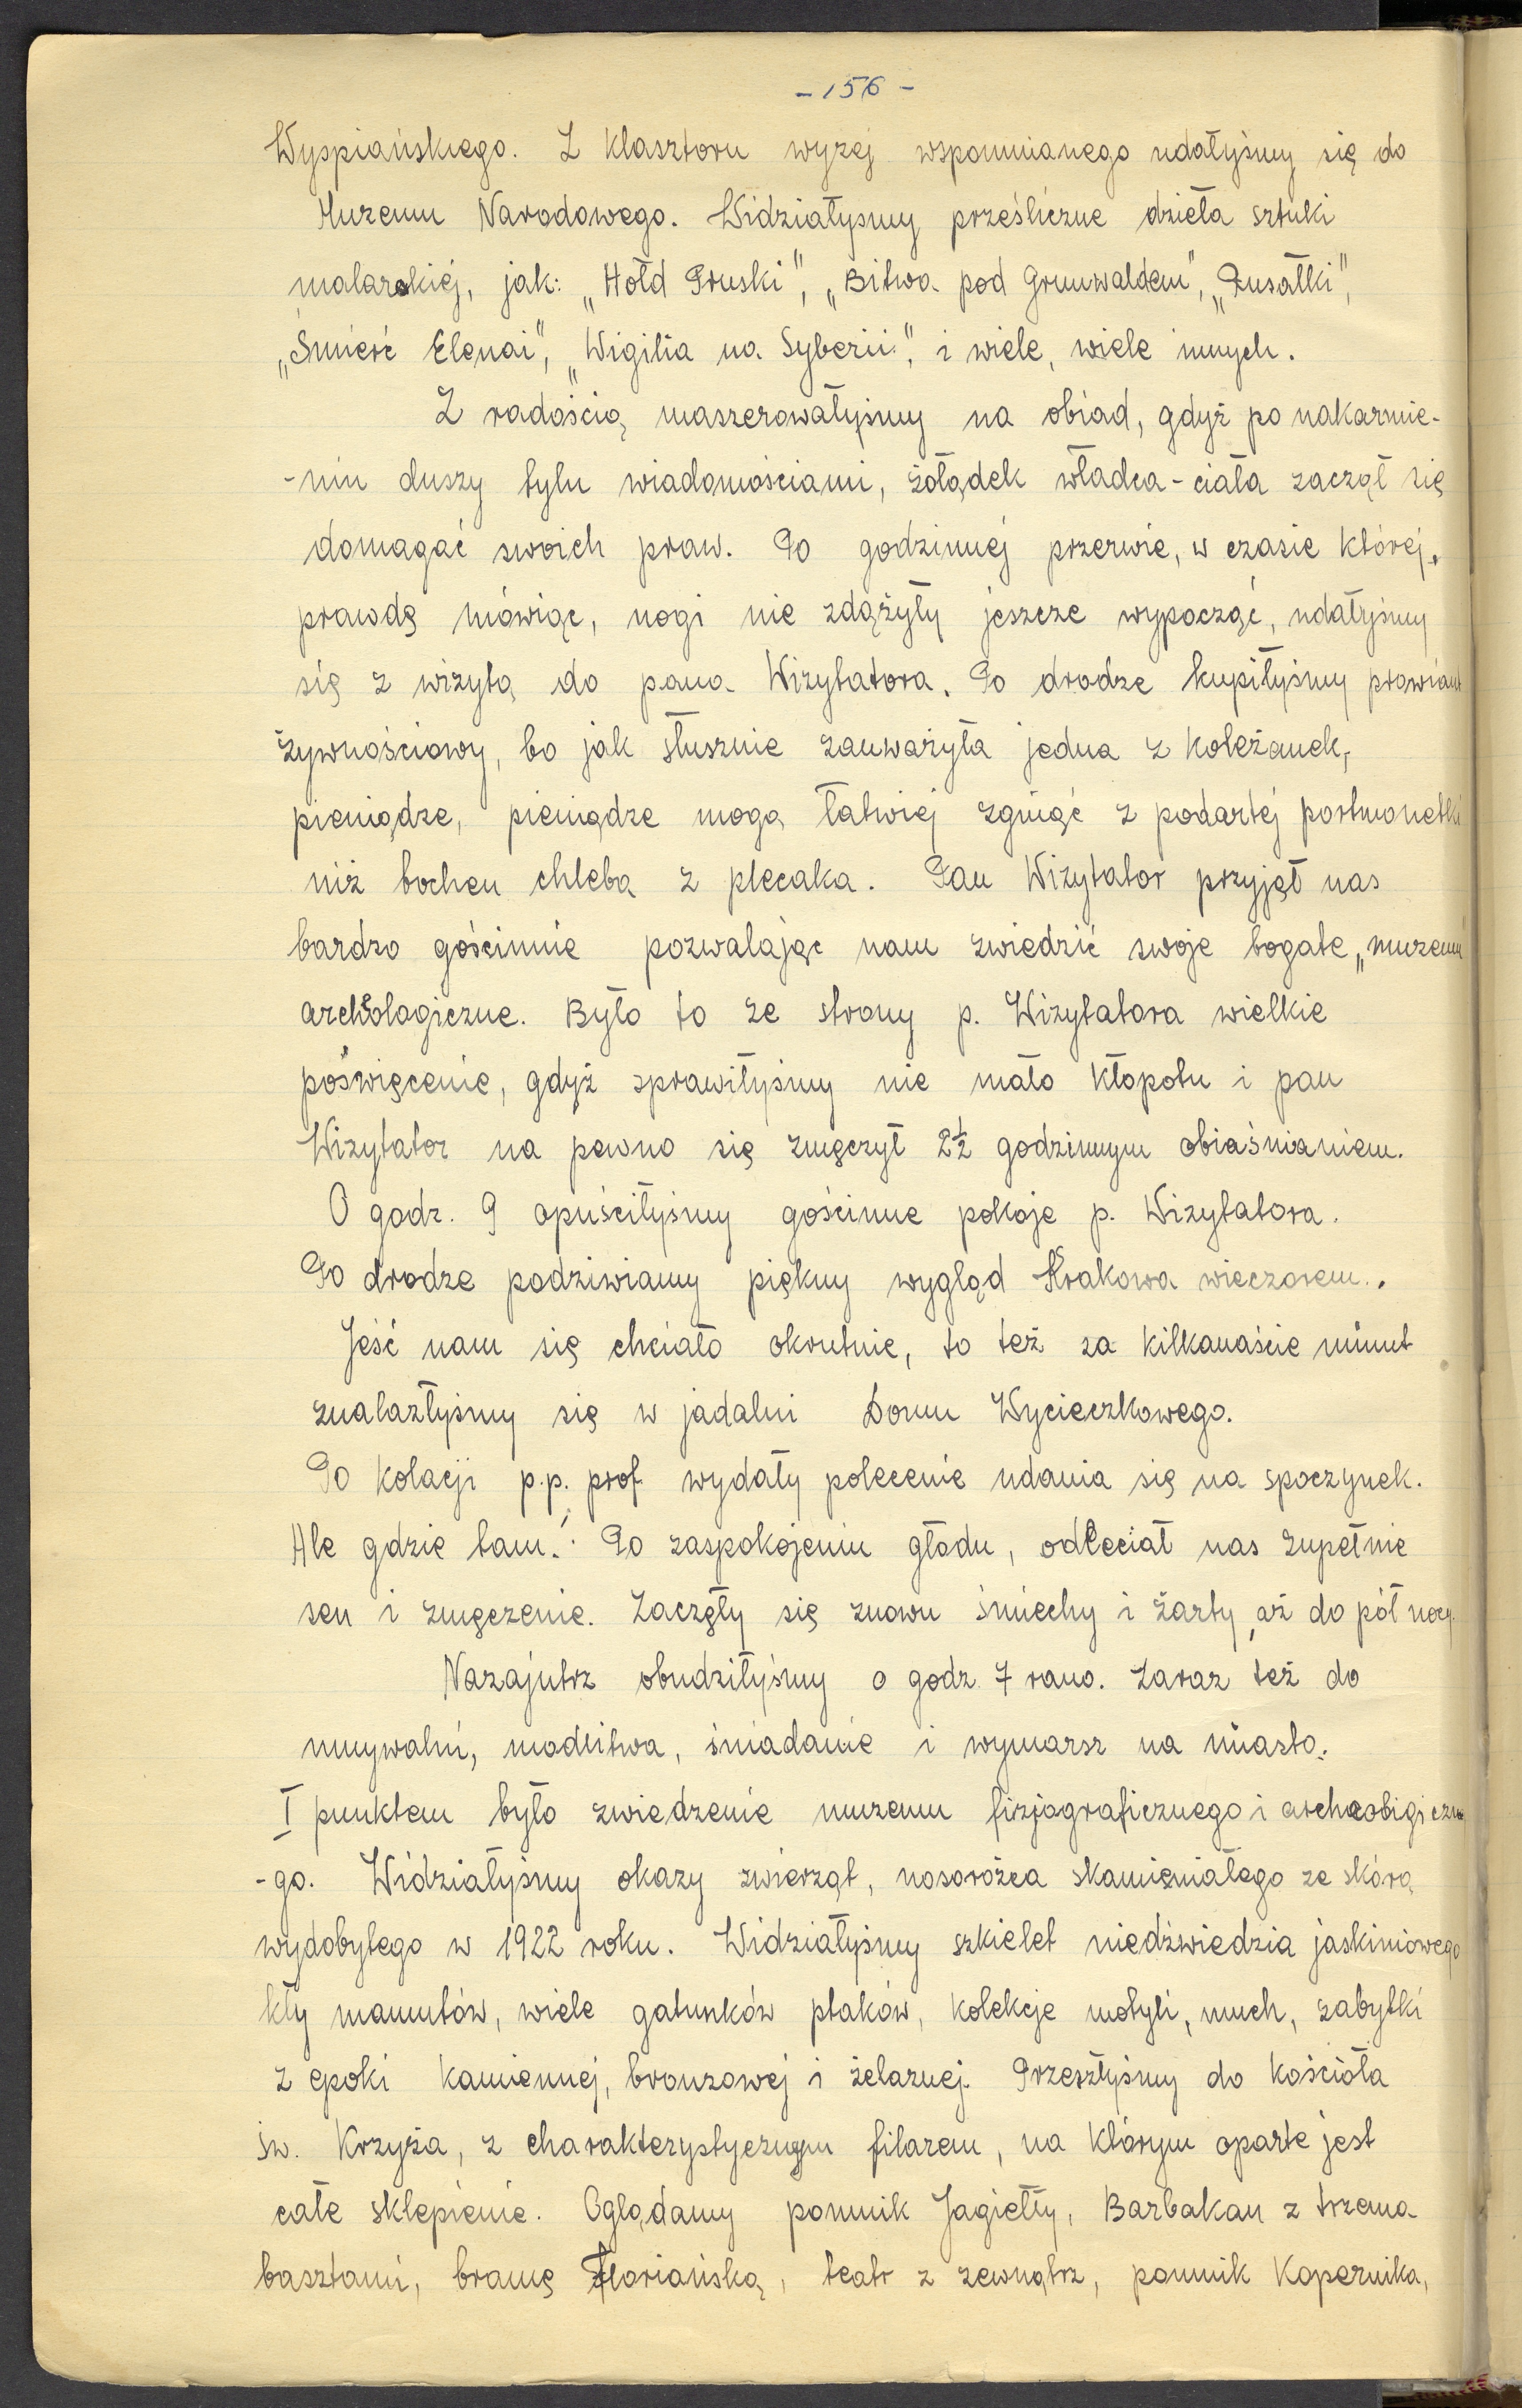 - 156 -
Wyspiańskiego. Z klasztoru wyżej wspomnianego udałyśmy się do
Muzeum Narodowego. Widziałyśmy prześliczne dzieła sztuki
malarskiej, jak: „Hołd Pruski", „Bitwa pod Grunwaldem", „Rusałki",
„Śmierć Elenai", „Wigilia na Syberii", i wiele, wiele innych.
Z radością maszerowałyśmy na obiad, gdyż po nakarmie-
-niu duszy tylu wiadomościami, żołądek władca-ciała zaczął się
domagać swoich praw. Po godzinnej przerwie, w czasie której,
prawdę mówiąc, nogi nie zdążyły jeszcze wypocząć, udałyśmy
się z wizytą do pana Wizytatora. Po drodze kupiłyśmy prowiant
żywnościowy, bo jak słusznie zauważyła jedna z koleżanek,
pieniądze, pieniądze mogą łatwiej zginąć z podartej portmonetki
niż bochen chleba z plecaka. Pan Wizytator przyjął nas
bardzo gościnnie pozwalając nam zwiedzić swoje bogate „muzeum
archeologiczne. Było to ze strony p. Wizytatora wielkie
poświęcenie, gdyż sprawiłyśmy nie mało kłopotu i pan
Wizytator na pewno się zmęczył 2½ godzinnym obiaśnianiem.
O godz. 9 opuściłyśmy gościnne pokoje p. Wizytatora.
Po drodze podziwiamy piękny wygląd Krakowa wieczorem..
Jeść nam się chciało okrutnie, to też za kilkanaście minut
znalazłyśmy się w jadalni Domu Wycieczkowego.
Po kolacji p.p. prof. wydały polecenie udania się na spoczynek.
Ale gdzie tam! Po zaspokojeniu głodu, odleciał nas zupełnie
sen i zmęczenie. Zaczęły się znowu śmiechy i żarty, aż do pół nocy.
Nazajutrz obudziłyśmy o godz. 7 rano. Zaraz też do
umywalni, modlitwa, śniadanie i wymarsz na miasto.
I punktem było zwiedzenie muzeum fizjograficznego i archeologiczne
-go. Widziałyśmy okazy zwierząt, nosorożca skamieniałego ze skórą
wydobytego w 1922 roku. Widziałyśmy szkielet niedźwiedzia jaskiniowego
kły mamutów, wiele gatunków ptaków, kolekcje motyli, much, zabytki
z epoki kamiennej, bronzowej i żelaznej. Przeszłyśmy do kościoła
św. Krzyża, z charakterystycznym filarem, na którym oparte jest
całe sklepienie. Oglądamy pomnik Jagiełły, Barbakan z trzema
basztami, bramę Floriańską, teatr z zewnątrz, pomnik Kopernika,